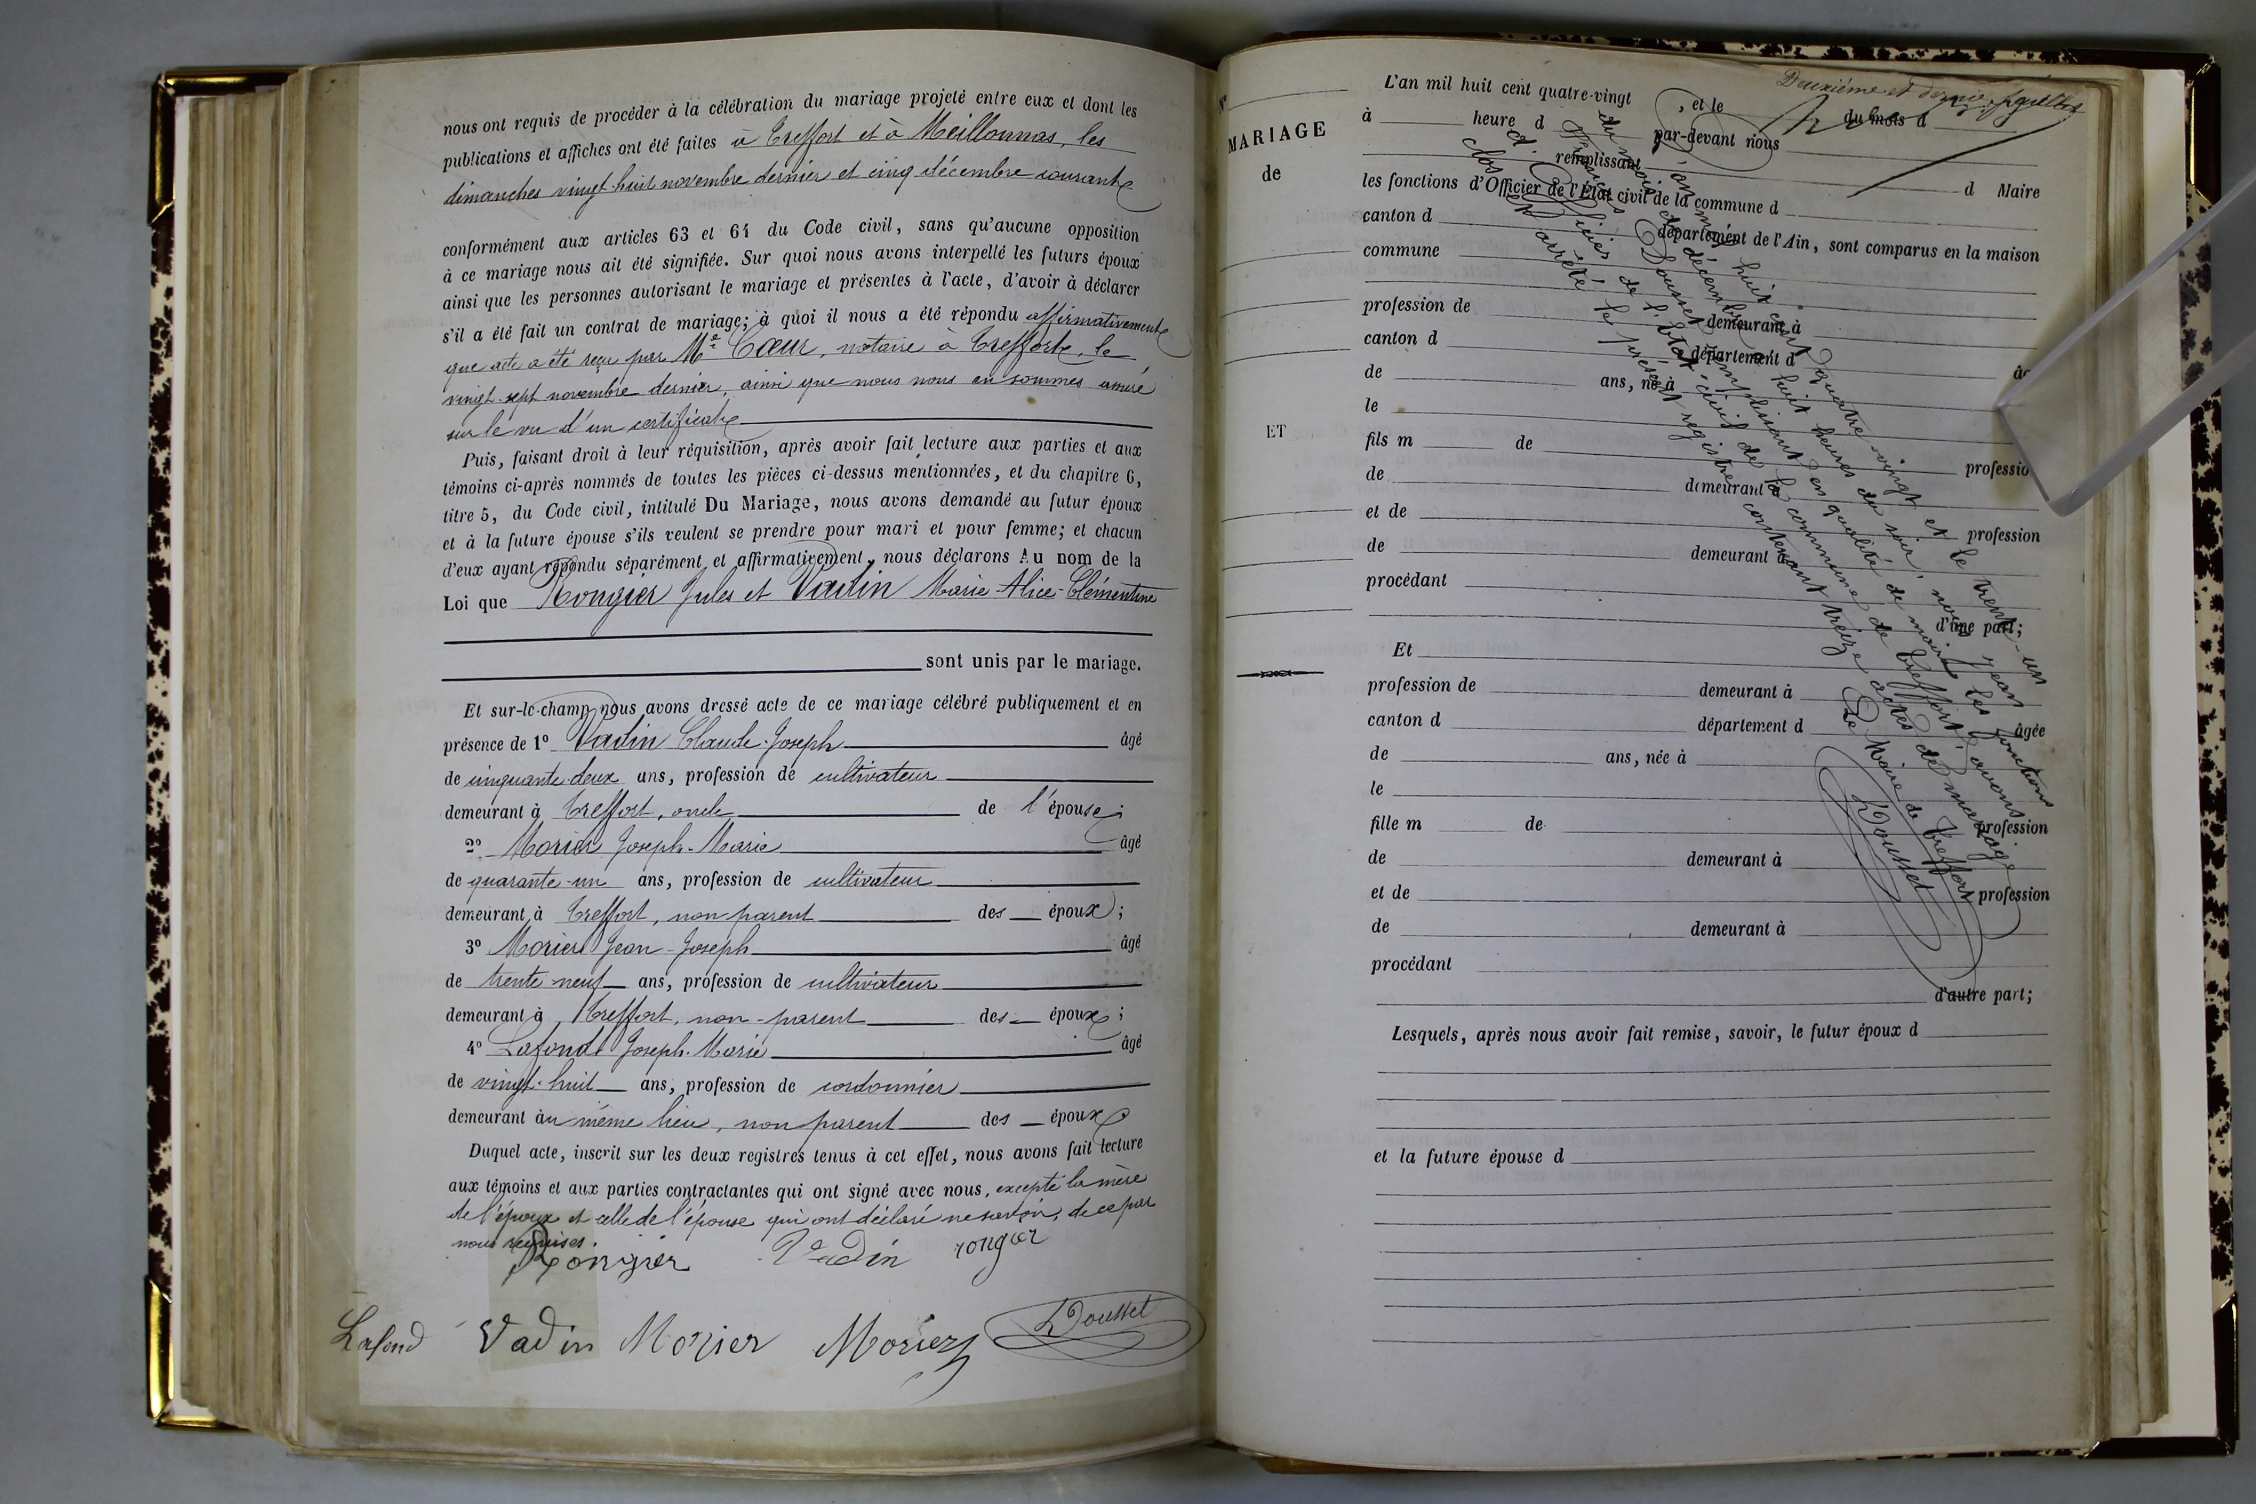 nous ont requis de procéder à la célébration du mariage projeté entre eux et dont les
publications et affiches ont été faites à Treffort et à Meillonnas, les
dimanches vingt huit novembre dernier et cinq décembre courant
conformément aux articles 63 et 64 du Code civil, sans qu'aucune opposition
à ce mariage nous ait été signifiée. Sur quoi nous avons interpellé les futurs époux
ainsi que les personnes autorisant le mariage et présentes à l'acte, d'avoir à déclarer
s'il a été fait un contrat de mariage; à quoi il nous a été répondu affirmativement
que acte a été reçu par Me Cœur, notaire à Treffort, le
vingt-sept novembre dernier, ainsi que nous nous en sommes assuré
sur le vu d'un certificat
Puis, faisant droit à leur réquisition, après avoir fait lecture aux parties et aux
témoins ci-après nommés de toutes les pièces ci-dessus mentionnées, et du chapitre 6,
titre 5, du Code civil, intitulé Du Mariage, nous avons demandé au futur époux
et à la future épouse s'ils veulent se prendre pour mari et pour femme; et chacun
d'eux ayant répondu séparément et affirmativement, nous déclarons Au nom de la
Loi que Rongier Jules et Vadin Marie-Alice-Clémentine
sont unis par le mariage.
Et sur-le-champ nous avons dressé acte de ce mariage célébré publiquement et en
présence de 1° Vadin Claude-Joseph âgé
de cinquante-deux ans, profession de cultivateur
demeurant à Treffort, oncle de l'épouse;
2° Morier Joseph-Marie âgé
de quarante-un ans, profession de cultivateur
demeurant à Treffort, non parent des époux;
3° Morier Jean-Joseph âgé
de trente neuf ans, profession de cultivateur
demeurant à Treffort, non-parent des époux;
4° Lafond Joseph-Marie âgé
de vingt-huit ans, profession de cordonnier
demeurant au même lieu, non parent des époux
Duquel acte, inscrit sur les deux registres tenus à cet effet, nous avons fait lecture
aux témoins et aux parties contractantes qui ont signé avec nous, excepté la mère
de l'époux et celle de l'épouse qui ont déclaré ne savoir, de ce par
nous requises.
Rongier Vadin rongier
Lafond Vadin Morier Morier Dousset
Deuxième et dernier feuillet
N°
MARIAGE
de
ET
L'an mil huit cent quatre-vingt , et le du mois d
à heure d par-devant nous
remplissant d Maire
les fonctions d'Officier de l'État civil de la commune d
canton d département de l'Ain, sont comparus en la maison
commune
profession de demeurant à
canton d département d
de ans, né à
le
fils m de profession
de demeurant à
et de profession
de demeurant à
procédant
d'une part;
Et
profession de demeurant à
canton d département d âgée
de ans, née à
le
fille m de profession
de demeurant à
et de profession
de demeurant à
procédant
d'autre part;
Lesquels, après nous avoir fait remise, savoir, le futur époux d
et la future épouse d
L'an mil huit cent quatre-vingt et le trente-un
du mois de décembre à huit heures du soir, nous Jean
Dousset remplissant en qualité de maire les fonctions
d'Officier de l'état-civil de la commune de Treffort, avons
clos et arrêté le présent registre contenant treize actes de mariage
Le Maire de Treffort
Dousset